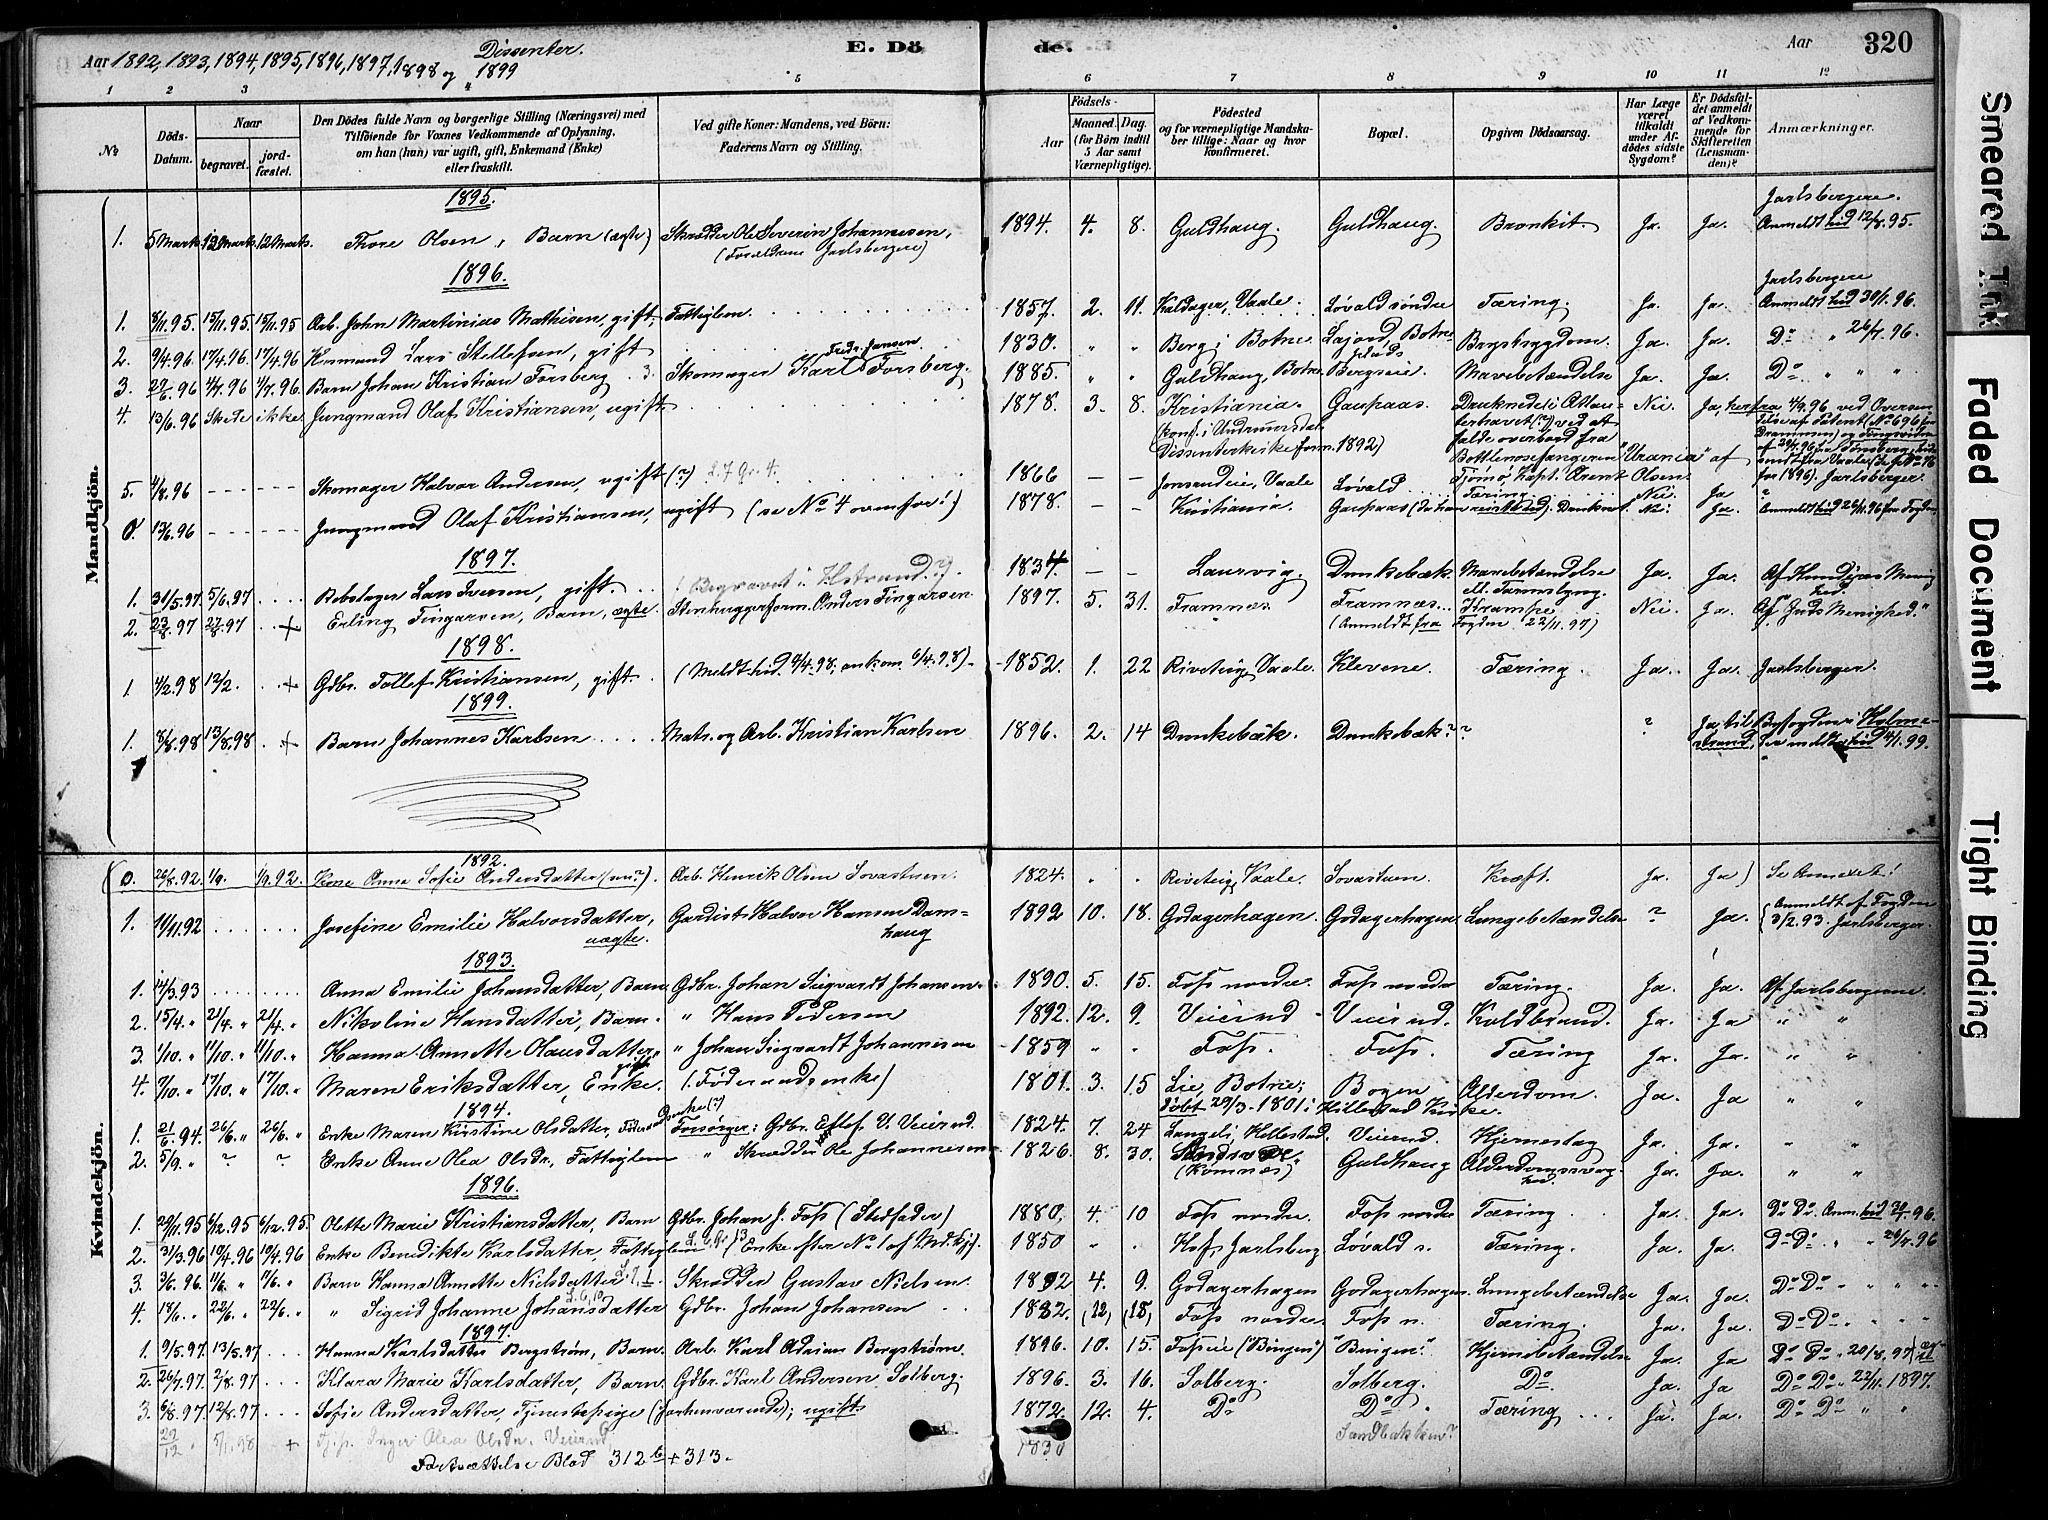 Aar 1892, 1893, 1894, 1895, 1896, 1897, 1898 og 1899 Dissenter.
E. Døde.
Aar 320
1 2 3 5 6 7 8 9 10 11 12
No
Døds-Datum.
Naar begravet. jordfæstet.
Den Dødes fulde Navn og borgerlige Stilling (Næringsvei) med Tilføiende for Voxnes Vedkommende af Oplysning, om han (hun) var ugift, gift, Enkemand (Enke) eller fraskilt.
Ved gifte Koner: Mandens, ved Børn: Faderens Navn og Stilling.
Fødsels- Aar Maaned. Dag. (for Børn indtil 5 Aar samt Værnepligtige).
Fødested og for værnepligtige Mandskaber tillige: Naar og hvor konfirmeret.
Bopæl.
Opgiven Dødsaarsag.
Har Læge været tilkaldt under Afdødes sidste Sygdom?
Er Dødsfaldet anmeldt af Vedkommende for Skifteretten (Lensmanden)?
Anmærkninger.
Mandkjön.
1895.
1. 5 Marts 12 Marts 12 Marts. Thore Olsen, Barn (ægte) Skrædder Ole Severin Johannesen, (Forældrene Jarlsbergere) 1894. 4. 8. Guldhaug. Guldhaug. Bronkit. Ja. Ja. Jarlsbergere. Anmeldt hid 12/8.95.
1896.
1. 8/11.95. 15/11.95. 15/11.95 Arb. John Martinias Mathisen, gift, Fattiglem 1857. 2. 11. Kaldager, Vaale. Løvald søndre Tæring. Ja. Ja. Jarlsbergere Anmeldt hid 30/1.96.
2. 9/4.96 17/4.96. 17/4.96 Husmand Lars Stellefsen, gift 1830. " " Berg i Botne. Lajord, Botne Brystsygdom. Ja. Ja. Do " 26/7.96.
3. 27/6.96 1/7.96 1/7.96. Barn Johan Kristian Forsberg. Skomager Karl Fredr. Jansen Forsberg. 1885. " " Guldhaug, Botne. Bergseie. Mavebetændelse Ja. Ja. Do " " "
4. 13/6.96 Skede ikke. Jungmand Olaf Kristiansen, ugift 1878. 3. 8. Kristiania. (konf. i Undrumsdal Dissenterkirkeforn. 1892) Gaupaas. Druknede i Atlanterhavet (?) ved at falde overbord fra Bottlenosefangeren "Urania" af Tjømø, Kapt. Arent Olsen. Nei Ja, herfra 4/9.96 ved
5. 4/8.96 Skomager Halvor Andersen, ugift (?) L. 7 Gr. 4. 1866 Jonsrudeie, Vaale Løvald Tæring Nei. Ja Jarlsberger.
0. 13/6.96 Jungmand Olaf Kristiansen, ugift (se No 4 ovenfor!) 1878. Kristiania. Gaupaas Druknet. Nei. Ja. Anmeldt hid 26/11.96 fra Fogden
1897.
1. 31/5.97 5/6.97 Rebslager Lars Iversen, gift. (Begravet i Hlstrand?). 1834. Laurvig. Dunkebæk. Mavebetændelse el. Tarmslyng. Ja. Ja. Af Menighed.
2. 23/8.97 27/8.97 + Erling Fingarsen, Barn, ægte. Stenhuggerform. Anders Fingarsen 1897. 5. 31. Framnæs. Framnæs. (Anmeldt fra Fogden 22/11.97) Krampe Nei. Ja. Af "Guds Menighed."
1898.
1. 4/2.98 12/2. + Gdbr. Tollef Kristiansen, gift. (Meldt hid 4/4.98, ankom. 6/4.98). 1852. 1. 22 Riveteig, Vaale. Klevene. Tæring. Ja. Ja. Jarlsberger.
1899.
1. 8/8.98 13/8.98 + Barn Johannes Karlsen Matr. og Arb. Kristian Karlsen 1896. 2. 14 Dunkebæk. Dunkebæk? ? ? Ja til Byfogden i Holmestrand, meldt hid 4/1.99.
Kvindekjön.
1892.
0. 26/8.92. 1/9. 1/9.92. Kone Anna Sofie Andersdatter Arb. Henrik Olsen Sovastuen. 1824. " " Riveteig, Vaale. Sovastuen. Kræft. Ja. Ja) Se Annexet!
1. 11/11.92 Josefine Emilie Halvorsdatter, uægte. Gardist Halvor Hansen Damhaug 1892 10. 18. Godagerhagen. Godagerhagen Lungebetændelse ? Ja. {Anmeldt af Fogden 3/2.93. Jarlsberger.
1893.
1. 14/3.93 Anna Emilie Johansdatter, Barn Gdbr. Johan Sigvardt Johansen 1890. 5. 15. Foss nordre. Foss nordre Tæring. Ja. Ja. Af Jarlsbergerne.
2. 15/4. " 21/4. " 21/4. " Nikoline Hansdatter, Barn. " Hans Pedersen 1892. 12. 9. Veierud Veierud. Koldbrand. Ja. Ja " "
3. 1/10. " 11/10. " 11/10. " Hanna Annette Olausdatter, gift " Johan Sigvardt Johannesen 1859 " " Foss. Foss. Tæring Ja. Ja. " "
4. 7/10. " 17/10. " 17/10. " Maren Eriksdatter, Enke. (Føderaadsenke) 1801. 3. 15 Lie, Botne; døbt 29/3-1801 i Hillestad Kirke. Bogen Alderdom. Ja. Ja " "
1894.
1. 21/6.94. 26/6. " 26/6. " Enke Maren Kristine Olsdatter, Forsørger: Gdbr. Ellef U. Veierud. 1824. 7. 24 Langeli, Hillestad. Veierud. Hjerneslag Ja. Ja. " "
2. 5/9. " ? ? Enke Anne Olea Olsdr, Fattiglem " Skrædder Ole Johannesen 1826. 8. 30. (Komnæs) Guldhaug Alderdomssvaghed. Ja. Ja. " "
1896.
1. 29/11.95 6/12.95 6/12.95. Olette Marie Kristiansdatter, Barn Gdbr. Johan J. Foss (Stedfader) 1880. 4. 10 Foss nordre. Foss nordre Tæring. Ja. Ja. Do Do. Anm. hid 30/1.96.
2. 31/3.96 10/4.96 10/4.96 Enke Benedikte Karlsdatter, Fattiglem (Enke efter No 1 af Md. kjø). 1850 " " Hof, Jarlsberg Løvald s. Tæring. Ja. Ja. Do Do " " 26/7.96
3. 3/6.96. 11/6. " 11/6. " Barn Hanna Annette Nielsdatter Skrædder Gustav Nielsen. 1892 4. 9. Godagerhagen Godagerhagen Lungebetændelse Ja. Ja. Do Do " " "
4. 18/6. " 22/6. " 22/6. " " Sigrid Johanne Johansdatter Gdbr. Johan Johansen 1882. (12) (18) Foss nordre Foss n. Tæring. Ja. Ja. Do Do " " "
1897.
1. 9/5.97. 13/5.97 Hanna Karlsdatter Bergstrøm, Barn. Arb. Karl Adrian Bergstrøm. 1896. 10. 15. Fosseie ("Bingen") "Bingen." Hjernebetændelse Ja. Ja. Do Do " 20/8.97
2. 26/7.97. 2/8.97 Klara Marie Karlsdatter, Barn. Gdbr. Karl Andersen Solberg. 1896. 3. 16. Solberg. Solberg. Do Ja. Ja Do Do " 22/11.1897.
3. 6/8.97 12/8.97 Sofie Andersdatter, Tjenestepige (forhenværende); ugift 1872. 12. 4. Do Do Tæring Ja. Ja. Do Do " "
27/12 " 5/1.98 + Inger Olea Olsdr. Veierud 1830 Sandbakken?
Fortsættelse Blad 312b + 313.
Smeared Ink
Faded Document
Tight Binding